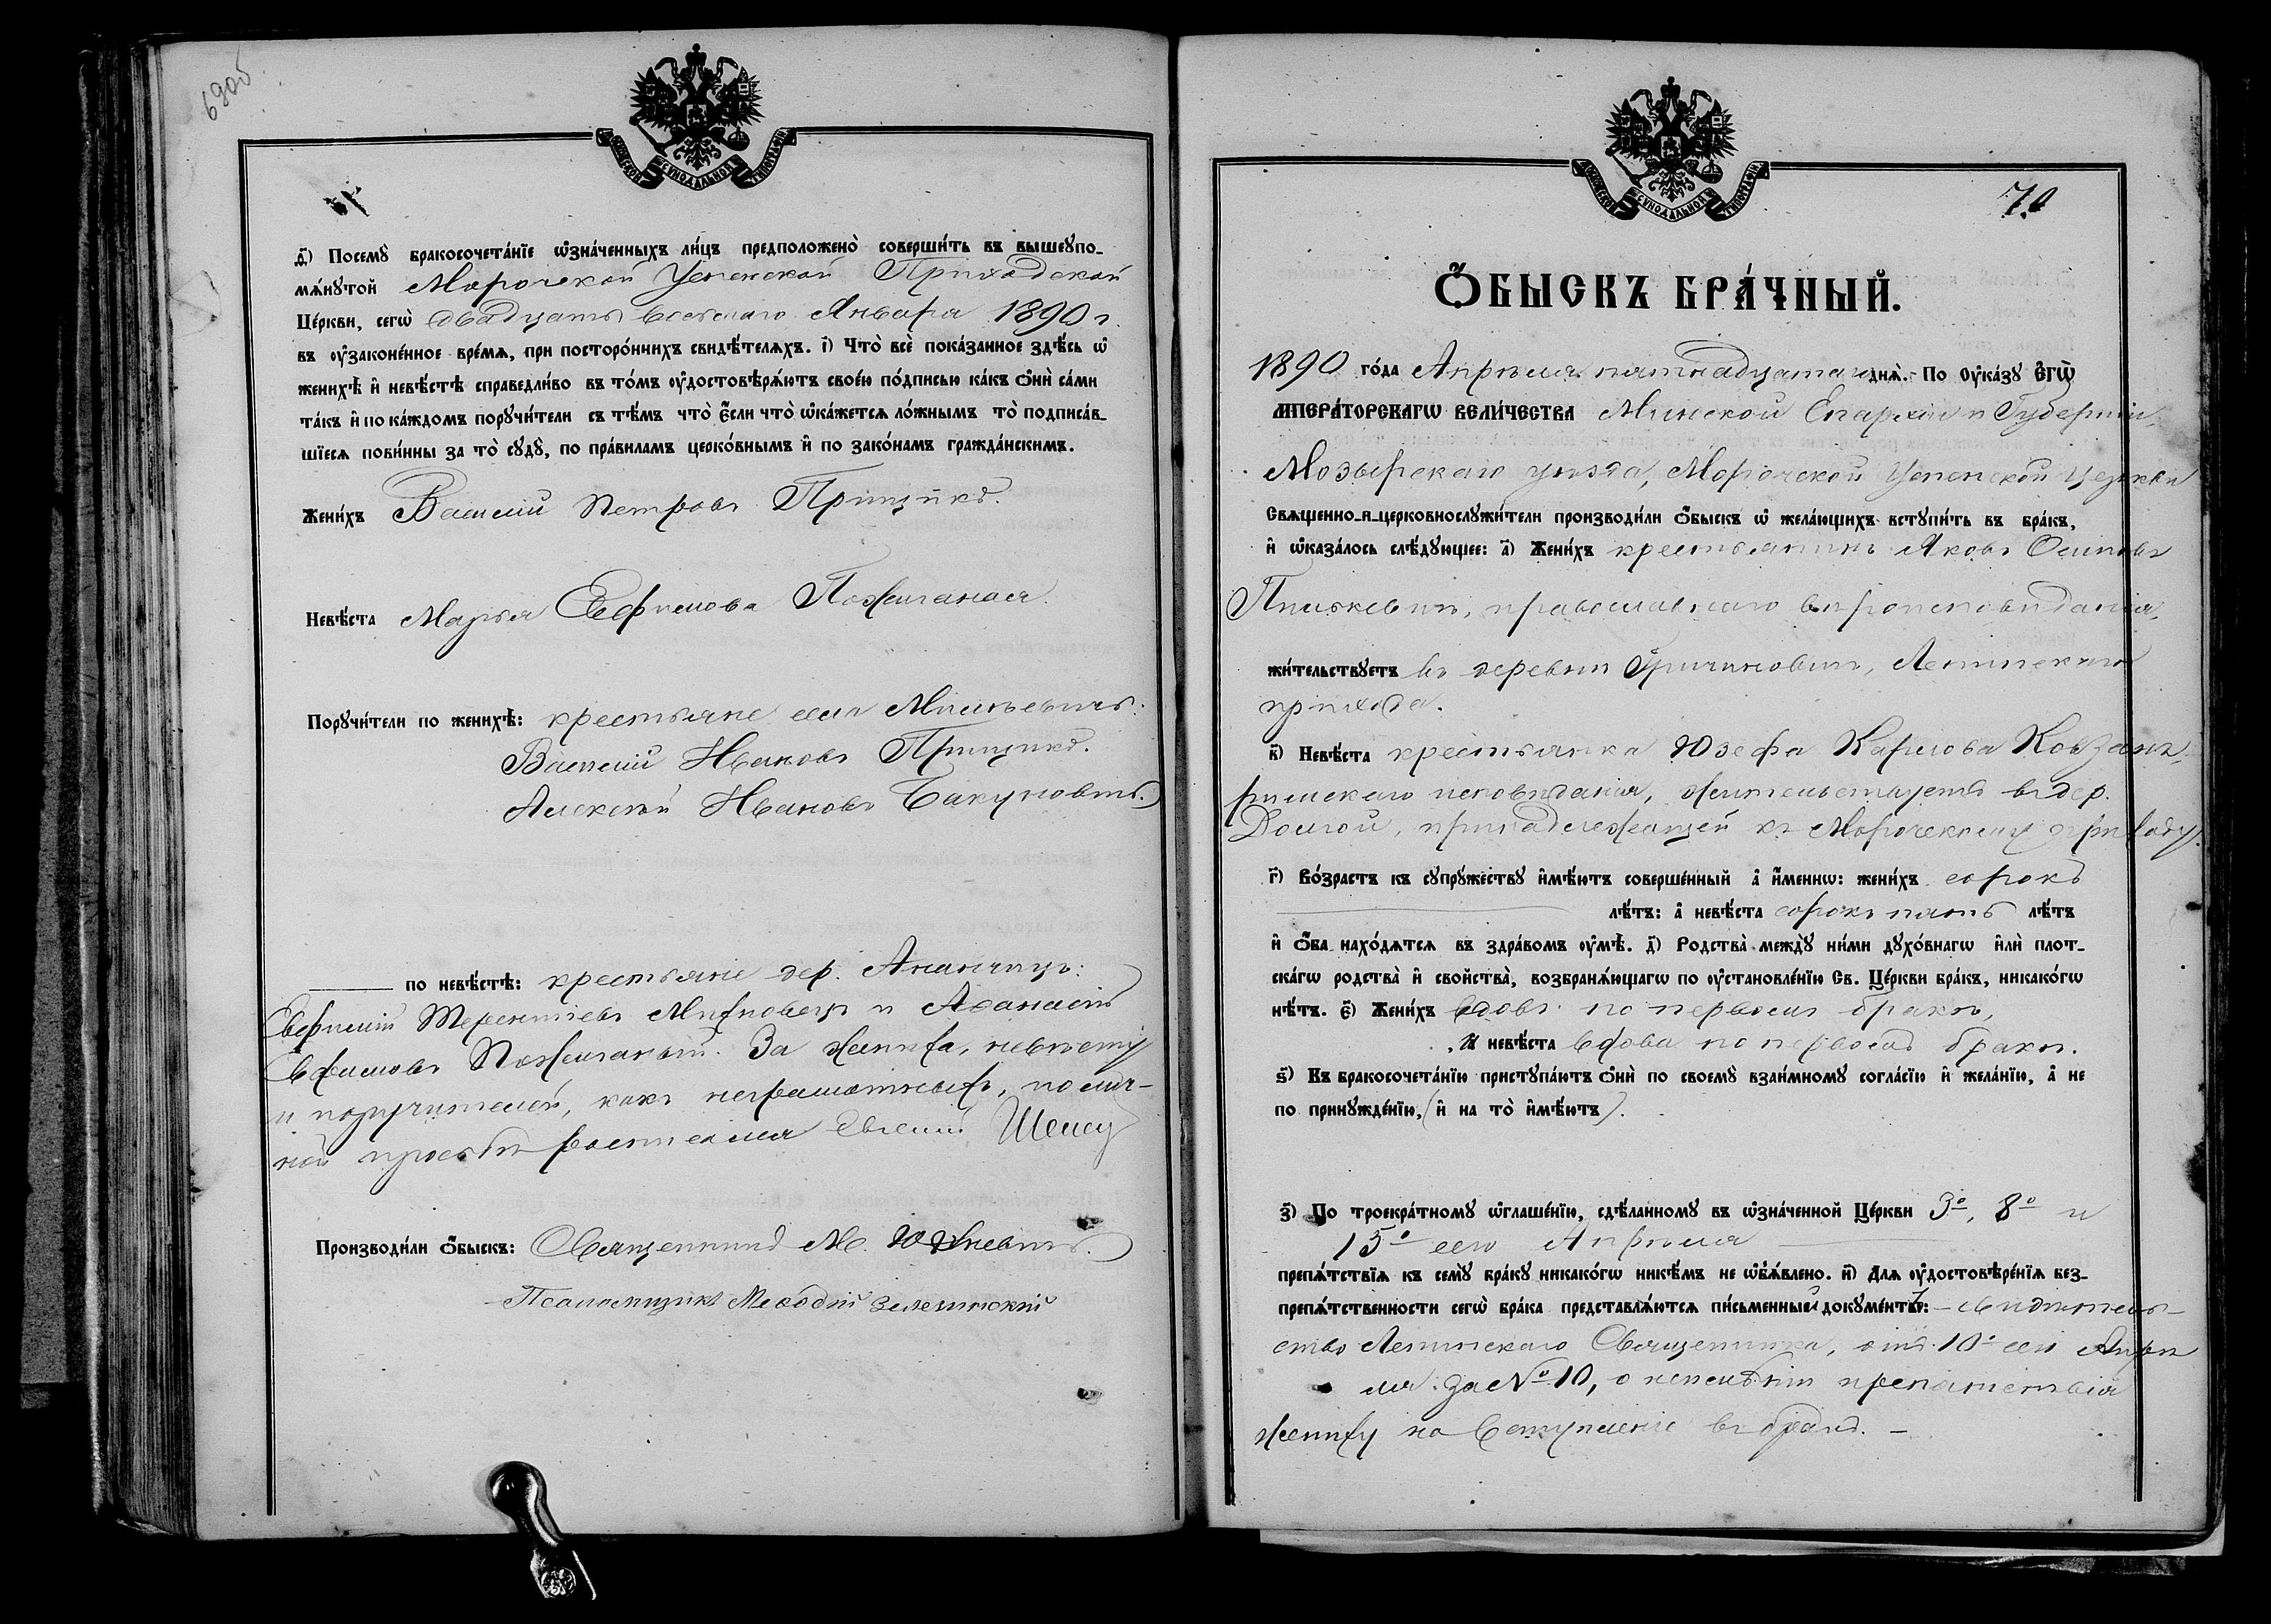 690б
МОСКОВСКОЙ СѴНОДАЛЬНОЙ ТИПОГРАФІИ
д҃) Посемꙋ̀ бракосочета́нїе ѡ҆зна́ченныхъ ли́цъ предположено̀ соверши́ть въ вышеꙋпо-
мѧ́нꙋтой Морочской Успенской Приходской
Це́ркви, сегѡ̀ двадцать восьмаго Января 1890 г.
въ ᲂу҆зако́ненное вре́мѧ, при посторо́ннихъ свидѣ́телѧхъ. і҃) Что̀ всѐ пока́занное здѣ́сь ѡ҆
женихѣ̀ и҆ невѣ́стѣ справедли́во въ то́мъ ᲂу҆достовѣрѧ́ютъ свое́ю по́дписью ка́къ ѻ҆нѝ са́ми
та́къ и҆ по ка́ждомъ поручи́тели съ тѣ́мъ что̀ є҆́сли что̀ ѡ҆ка́жетсѧ ло́жнымъ то̀ подписа́в-
шїесѧ пови́нны за то̀ сꙋдꙋ̀, по пра́виламъ церко́внымъ и҆ по зако́намъ гражда́нскимъ.
Жени́хъ Василій Петровъ Прищикъ.
Невѣ́ста Марья Ефимова Пожиганая.
Порꙋчи́тели по женихѣ̀: крестьяне села Милевичъ:
Василій Ивановъ Прищикъ.
Алексѣй Ивановъ Бакуновичъ.
по невѣ́стѣ: крестьяне дер. Ананчицъ:
Евфимій Терентіевъ Михновецъ и Аѳанасій
Ефимовъ Пожиганый. За жениха, невѣсту
и поручителей, какъ неграмотныхъ, по лич-
ной просьбѣ росписался Евгеній
Производи́ли ѻ҆́быскъ: Священникъ М. Юхневичъ.
Псаломщикъ Меѳодій Зелинскій
МОСКОВСКОЙ СѴНОДАЛЬНОЙ ТИПОГРАФІИ
70
Ѻ҆́БЫСКЪ БРА́ЧНЫЙ.
1890 го́да Апрѣля пятнадцатаго днѧ̀. По ᲂу҆ка́зꙋ Є҆гѡ̀
ИМПЕРА́ТОРСКАГѠ ВЕЛИ́ЧЕСТВА Минской Епархіи и Губерніи,
Мозырскаго уѣзда, Морочской Успенской церкви
Свѧщенно-и-церковнослꙋжи́тели производи́ли ѻ҆́быскъ ѡ҆ жела́ющихъ вступи́ть въ бра́къ,
и҆ ѡ҆каза́лось слѣ́дꙋющее: а҃) Жени́хъ крестьянинъ Яковъ Осиповъ
православнаго вѣроисповѣданія,
жи́тельствꙋетъ въ деревнѣ Гричиновичъ, Ленинскаго
прихода.
в҃) Невѣ́ста крестьянка Юзефа Карлова Ковзанъ,
римскаго исповѣданія, жительствуетъ въ дер.
Долгой, принадлежащей къ Морочскому приходу.
г҃) Во́зрастъ къ сꙋпрꙋ́жествꙋ и҆мѣ́ютъ соверше́нный а҆ и҆́меннѡ: жени́хъ сорокъ
лѣ́тъ: а҆ невѣ́ста сорокъ пять лѣ́тъ
и҆ ѻ҆́ба нахо́дѧтсѧ въ здра́вомъ ᲂу҆мѣ̀. д҃) Родства̀ междꙋ̀ ни́ми дꙋхо́внагѡ и҆лѝ плот-
ска́гѡ родства̀ и҆ сво́йства̀, возбранѧ́ющагѡ по ᲂу҆становле́нїю Св. Це́ркви бра́къ, никако́гѡ
нѣ́тъ. є҃) Жени́хъ вдовъ по первомъ бракѣ,
и невѣ́ста вдова по первомъ бракѣ.
ѕ҃) Къ бракосочета́нїю пристꙋпа́ютъ ѻ҆нѝ по своемꙋ̀ взаи́мномꙋ согла́сїю и҆ жела́нїю, а҆ не
по принꙋжде́нїю, (и҆ на то̀ и҆мѣ́ютъ).
з҃) По троекра́тномꙋ ѡ҆глаше́нїю, сдѣ́ланномꙋ въ ѡ҆зна́ченной Це́ркви 3º, 8º и
15º сего Апрѣля
препѧ́тствїѧ къ семꙋ̀ бра́кꙋ никако́гѡ никѣ́мъ не ѡ҆б̾ѧ́влено. и҃) Длѧ ᲂу҆достовѣре́нїѧ без-
препѧ́тственности сегѡ̀ бра́ка представлѧ́ютсѧ пи́сьменный докꙋме́нтъ: – свидѣтель-
ство Ленинскаго Священника, отъ 10º сего Апрѣ
ля за № 10, о неимѣніи препятствія
жениху на вступленіе въ бракъ. –